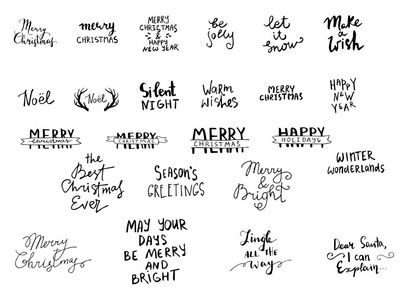 Merry
Christmas
merry
CHRISTMAS
MERRY
CHRISTMAS
&
HAPPY
NEW YEAR
be
jolly
let
it
snow
Make
a
wish
Noël
Noël
Silent
NIGHT
Warm
wishes
MERRY
CHRISTMAS
HAPPY
NEW
YEAR
MERRY
christmas
MERRY
CHRISTMAS
MERRY
CHRISTMAS
HAPPY
HOLIDAYS
the
Best
Christmas
Ever
SEASON'S
GREETINGS
Merry
&
Bright
WINTER
wonderlands
Merry
Christmas
MAY YOUR
DAYS
BE MERRY
AND
BRIGHT
Jingle
ALL THE
Way
Dear Santa,
I can
Explain...